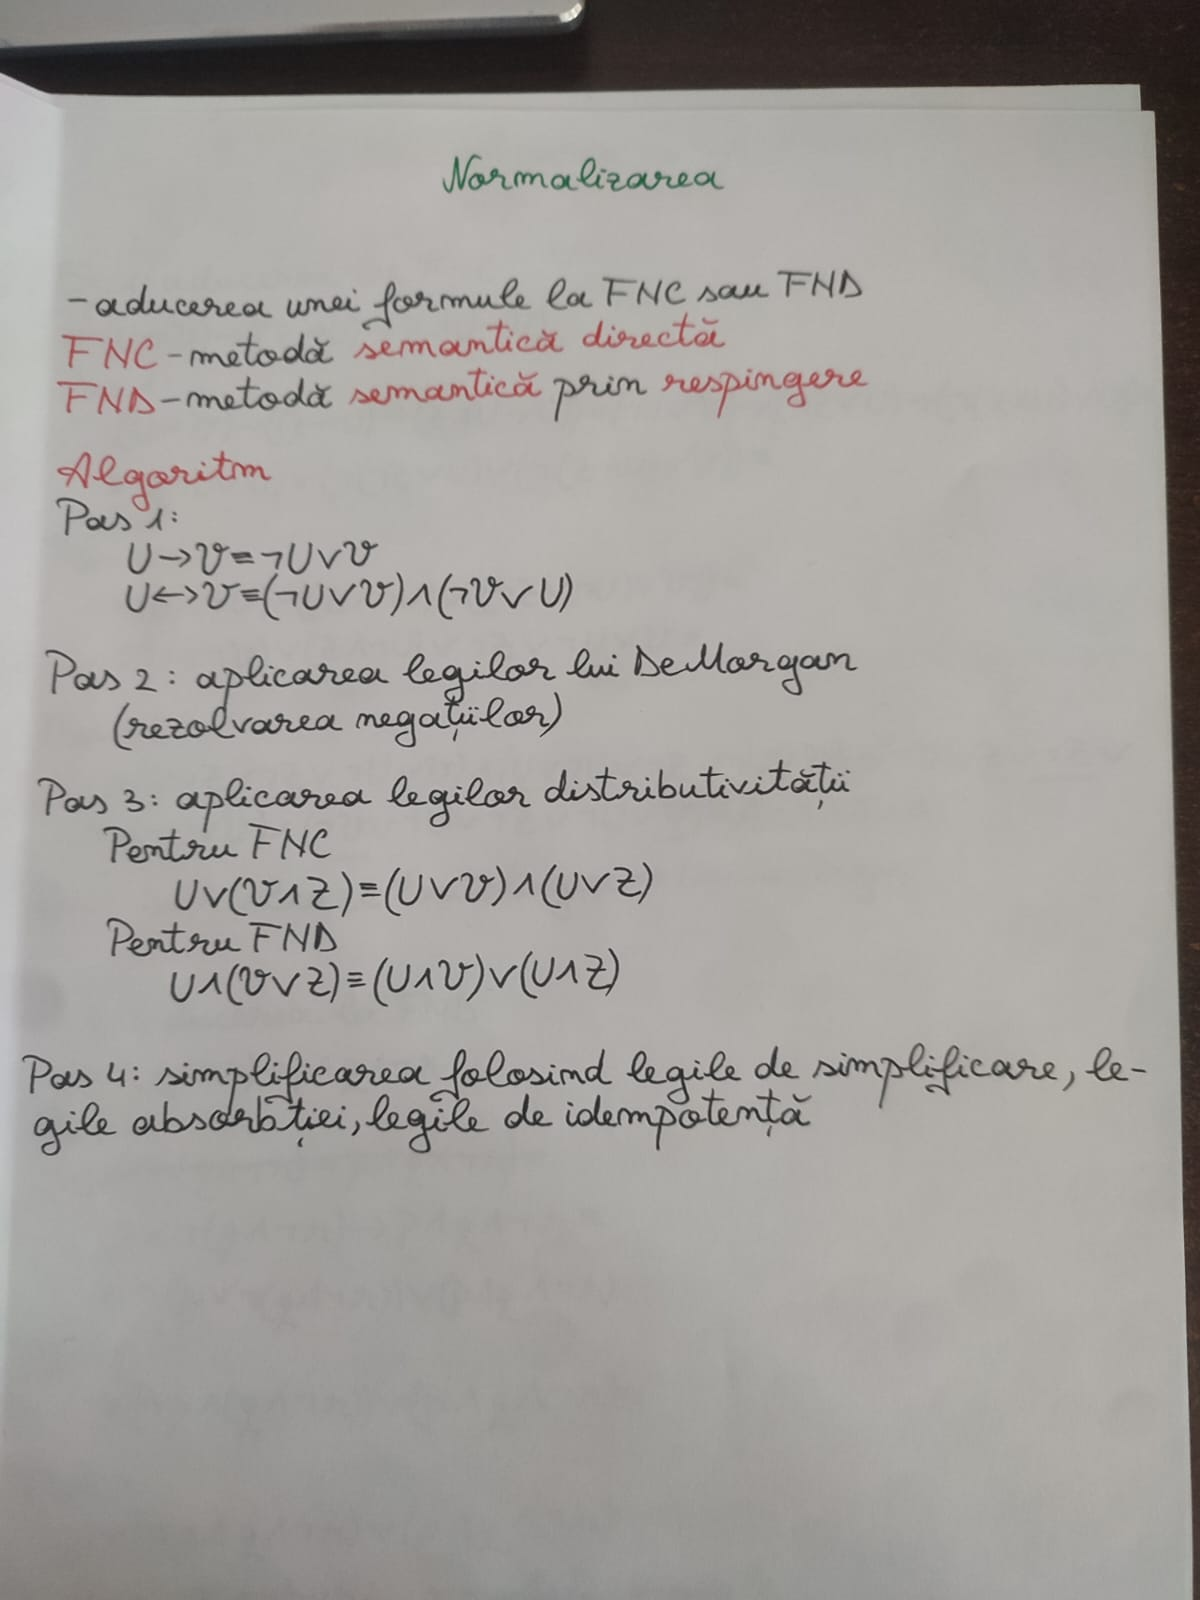 Normalizarea
- aducerea unei formule la FNC sau FND
FNC - metodă semantică directă
FND - metodă semantică prin respingere
Algoritm
Pas 1:
U → V ≡ ¬U ∨ V
U ↔ V ≡ (¬U ∨ V) ∧ (¬V ∨ U)
Pas 2: aplicarea legilor lui DeMorgan
(rezolvarea negațiilor)
Pas 3: aplicarea legilor distributivității
Pentru FNC
U ∨ (V ∧ Z) ≡ (U ∨ V) ∧ (U ∨ Z)
Pentru FND
U ∧ (V ∨ Z) ≡ (U ∧ V) ∨ (U ∧ Z)
Pas 4: simplificarea folosind legile de simplificare, le-
gile absorbției, legile de idempotență